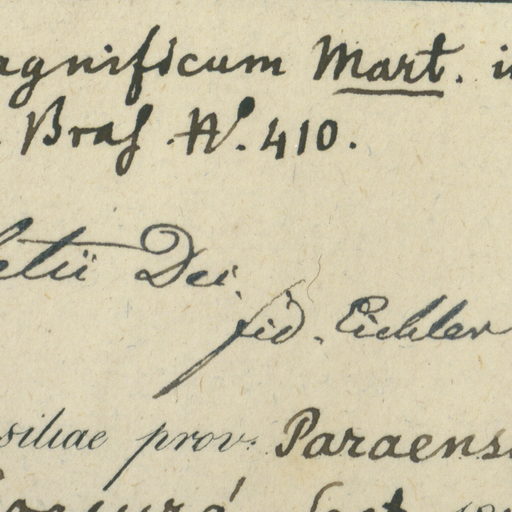 agnificum Mart. i
Bras. No. 410.
letii Dei.
fid. Eichler
siliae prov. Paraens